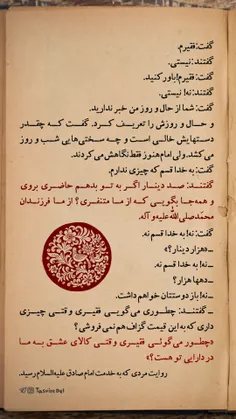 گفت: فقیرم.
گفتند: نیستی.
گفت: فقیرم! باور کنید.
گفتند: نه! نیستی.
گفت: شما از حال و روز من خبر ندارید.
و حال و روزش را تعریف کرد. گفت که چقدر
دستهایش خالی است و چه سختی‌هایی شب و روز
می‌کشد. ولی امام هنوز فقط نگاهش می‌کردند.
گفت: به خدا قسم که چیزی ندارم.
گفتند: صد دینار اگر به تو بدهم حاضری بروی
و همه‌جا بگویی که از ما متنفری؟ از ما فرزندان
محمّد صلی الله علیه و آله.
گفت: نه! به خدا قسم نه.
ـ هزار دینار؟
ـ نه! به خدا قسم نه.
ـ ده‌ها هزار؟
ـ نه! باز دوستتان خواهم داشت.
ـ گفتند: چطور می‌گویی فقیری وقتی چیزی
داری که به این قیمت گزاف هم نمی فروشی؟
«چطور می‌گوئی فقیری وقتی کالای عشق به ما
در دارایی تو هست؟»
روایت مردی که به خدمت امام صادق علیه‌السلام رسید.